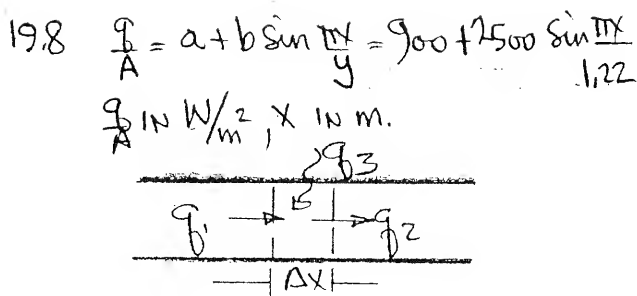 19.8 q/A = a + b sin πx/y = 900 + 2500 sin πx/1.22
q/A IN W/m², X IN m.
q₃
q₁ → → q₂
ΔX